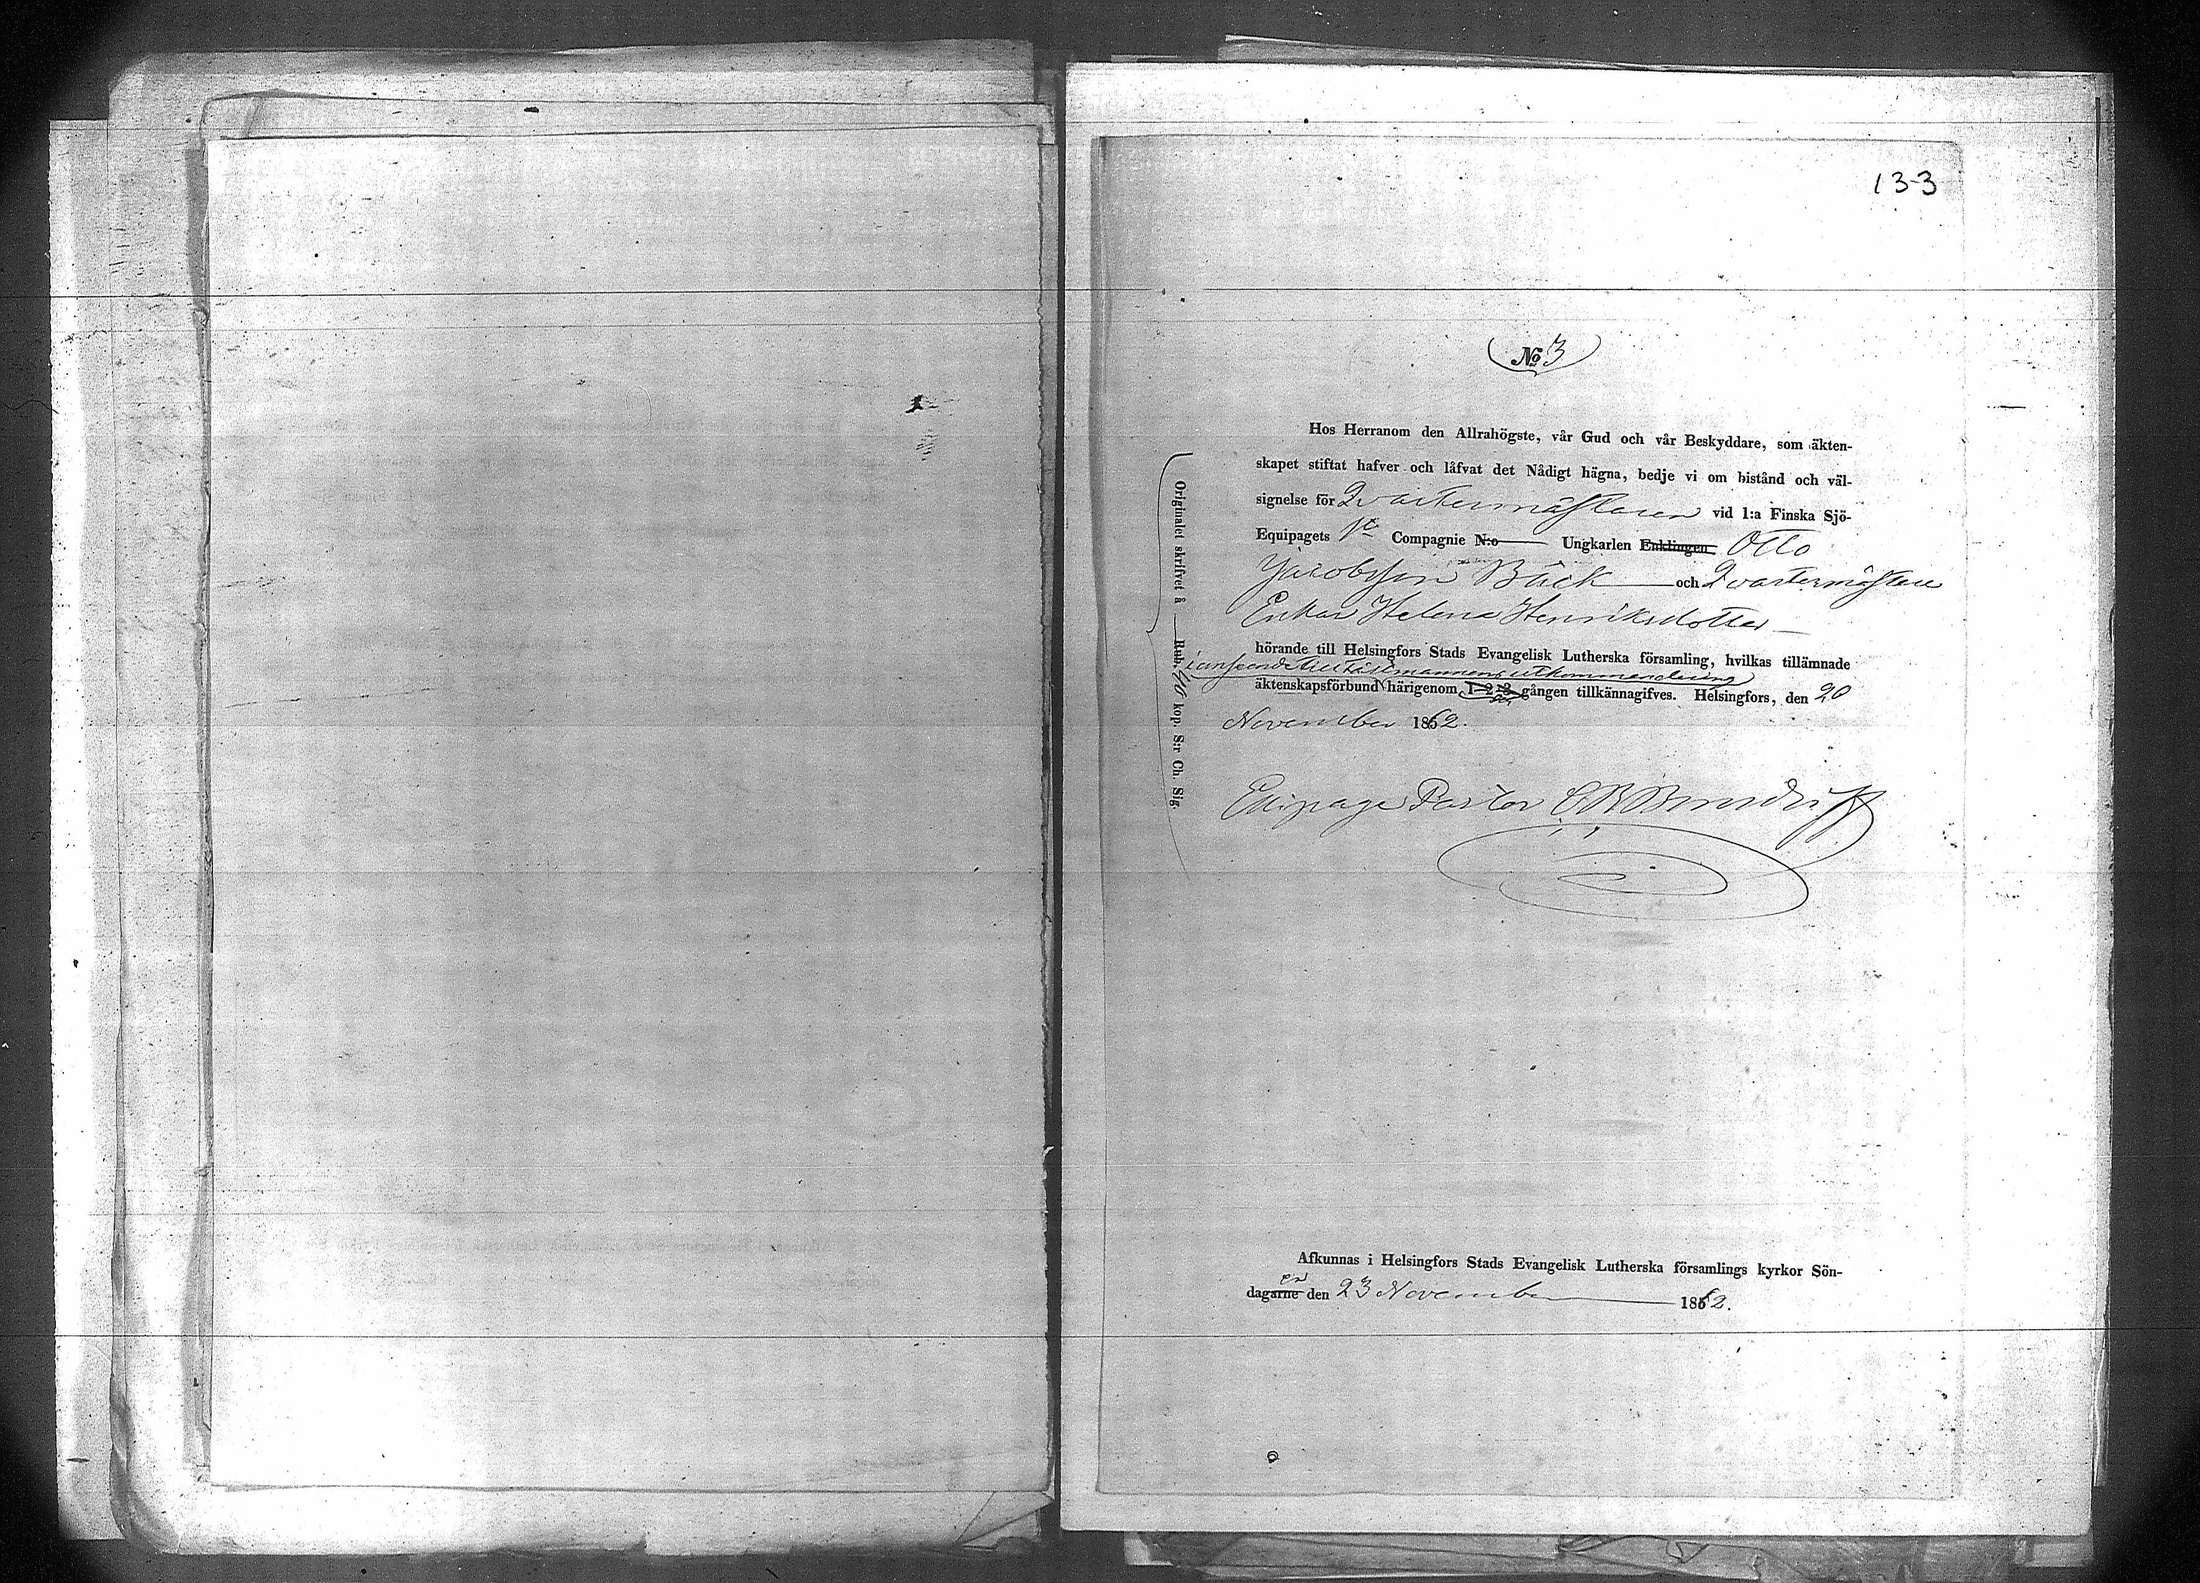 133
No 3
Hos Herranom den Allrahögste, vår Gud och vår Beskyddare, som äkten-
skapet stiftat hafver och låfvat det Nådigt hägna, bedje vi om bistånd och väl-
signelse för Qvartermästaren vid 1:a Finska Sjö-
Equipagets 1sta Compagnie N:o Ungkarlen Enklingen Otto
Jacobsson Bäck och Qvartermästare
Enkan Helena Henriksdotter
hörande till Helsingfors Stads Evangelisk Lutherska församling, hvilkas tillämnade
i anseende till fästmannens utkommendering
äktenskapsförbund härigenom 1-2-3 gången tillkännagifves. Helsingfors, den 20
November 1862.
Ekipage Pastor
Originalet skrifvet å Rub. 40 kop. S:r Ch. Sig.
Afkunnas i Helsingfors Stads Evangelisk Lutherska församlings kyrkor Sön-
en
dagarne den 23 November 1862.